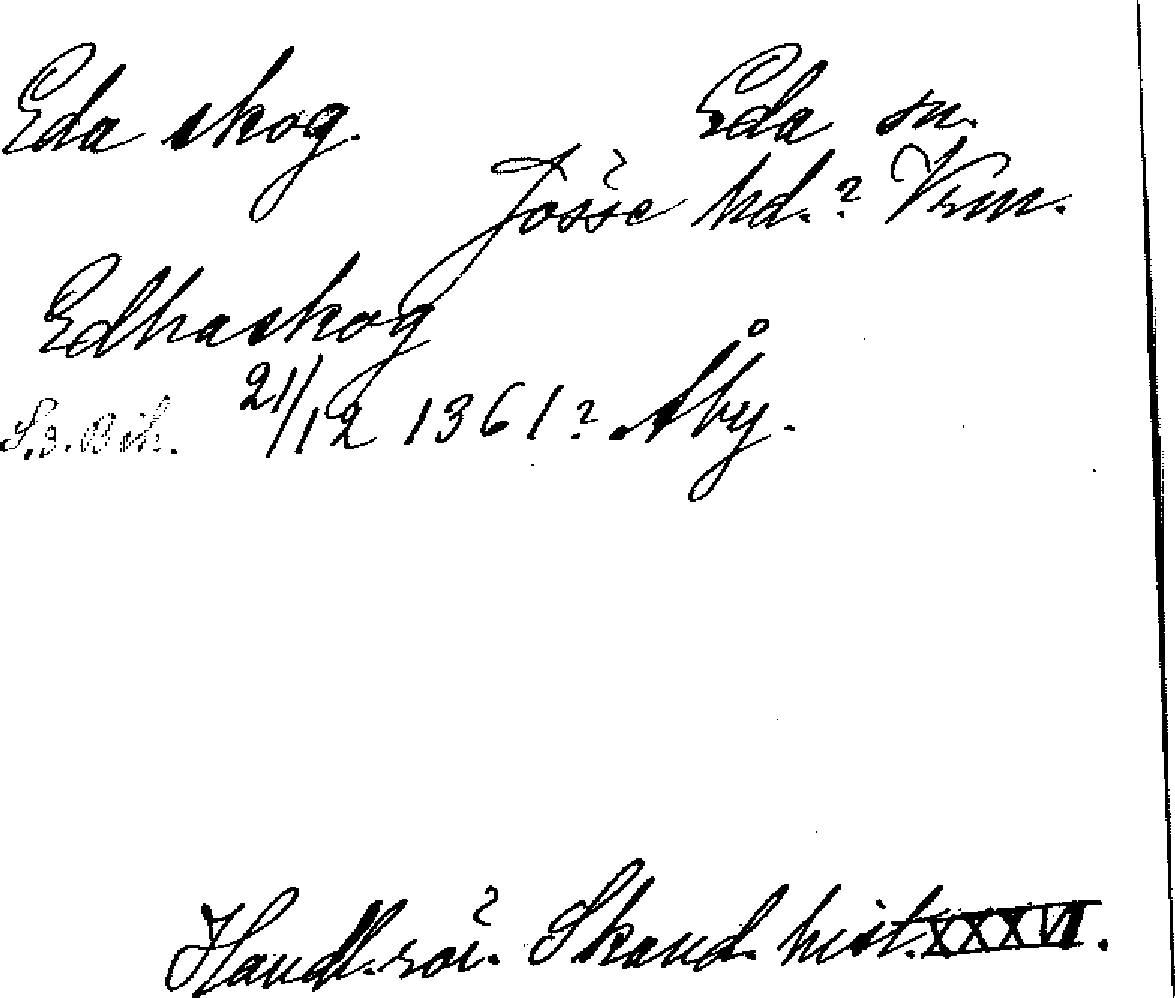 Eda skog. Eda sn.
Jösse hd.? Vrm.
Edhaskog
21/12 1361? Åby.
Handl. rör. Skand. hist. XXXVI.